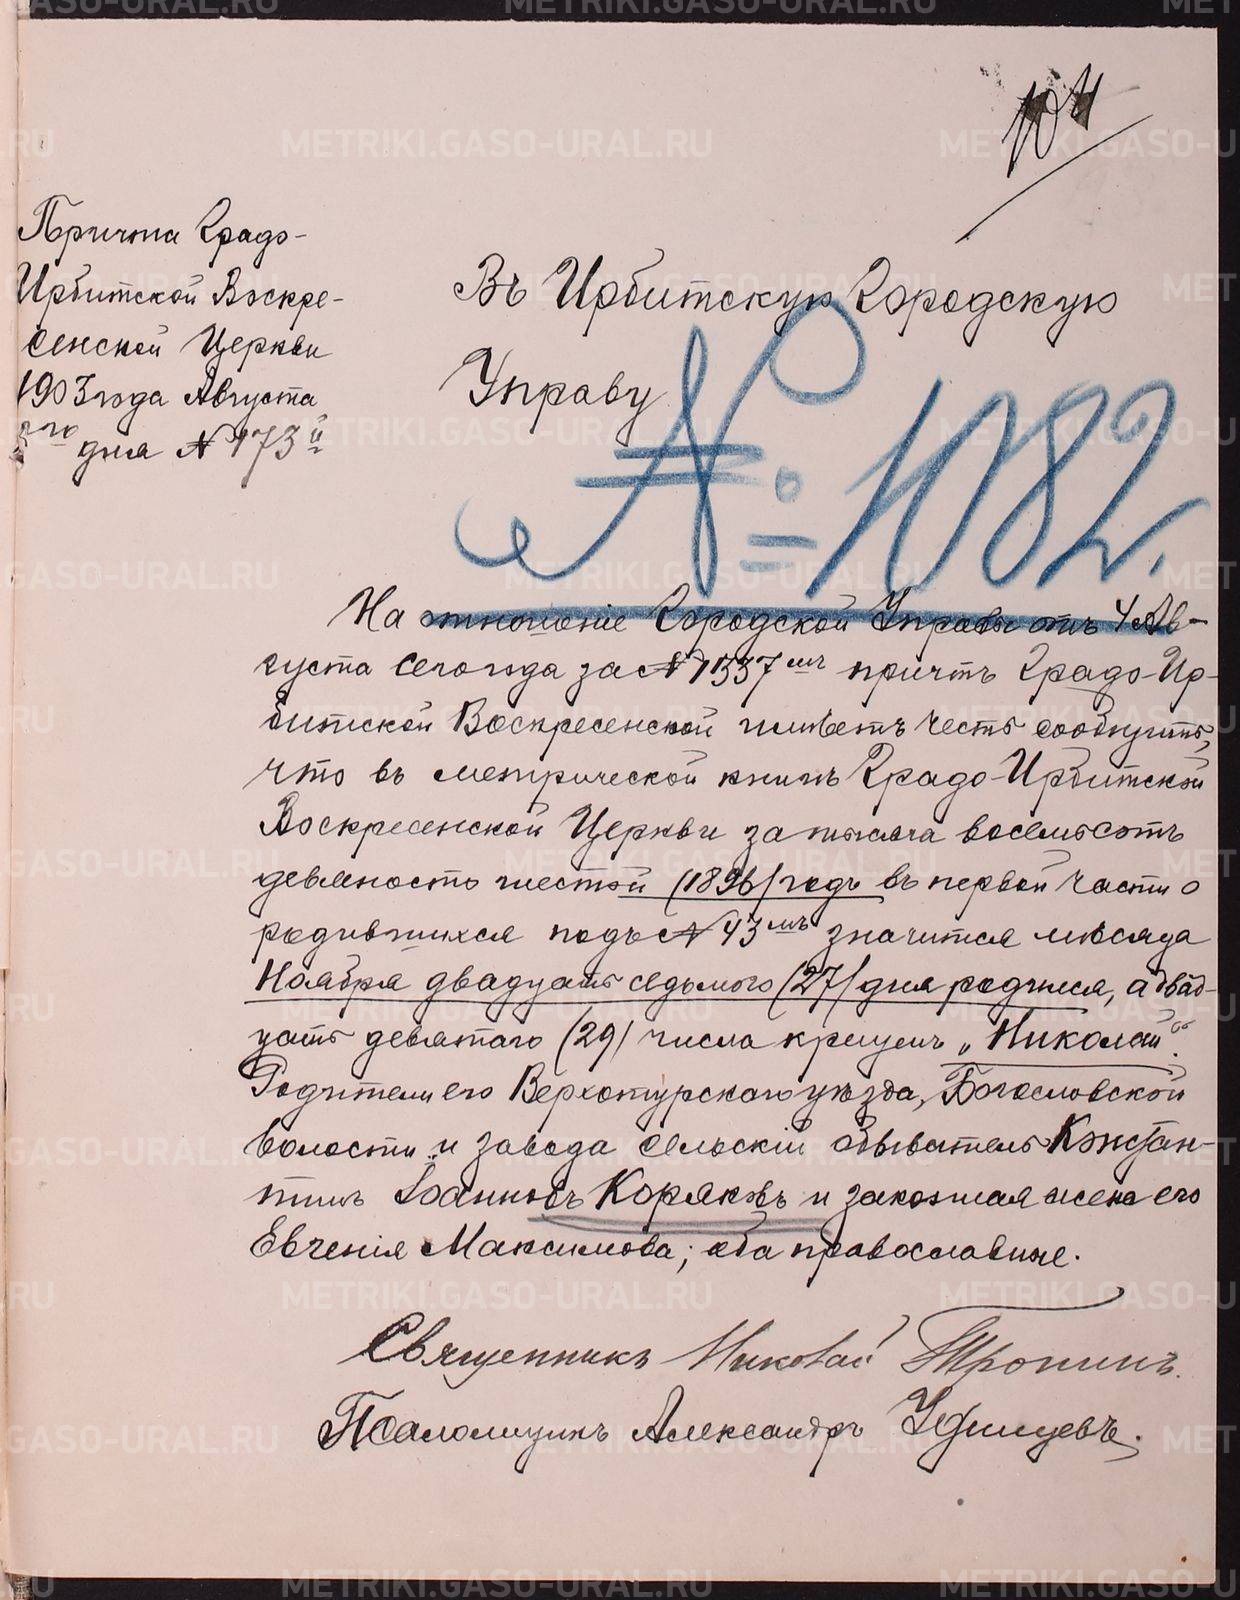 104
Причта Градо-
Ирбитской Воскре-
сенской Церкви
1903 года Августа
дня № 173й
Въ Ирбитскую Городскую
Управу
№ 1082.
На отношеніе Городской Управы отъ 4 Ав-
густа сего года за № 1337мъ причтъ Градо-Ир-
битской Воскресенской имѣетъ честь сообщить,
что въ метрической книгѣ Градо-Ирбитской
Воскресенской Церкви за тысяча восемьсотъ
девяносто шестой (1896) годъ въ первой части о
родившихся подъ № 43мъ значится мѣсяца
Ноября двадцать седьмого (27) дня родился, а двад-
цать девятаго (29) числа крещенъ „Николай“.
Родители его Верхотурскаго уѣзда, Богословской
волости и завода сельскій обыватель Констан-
тинъ Іоанновъ Коряковъ и законная жена его
Евгенія Максимова; оба православные.
Священникъ Николай Тронинъ.
Псаломщикъ Александръ Уфимцевъ.
METRIKI.GASO-URAL.RU